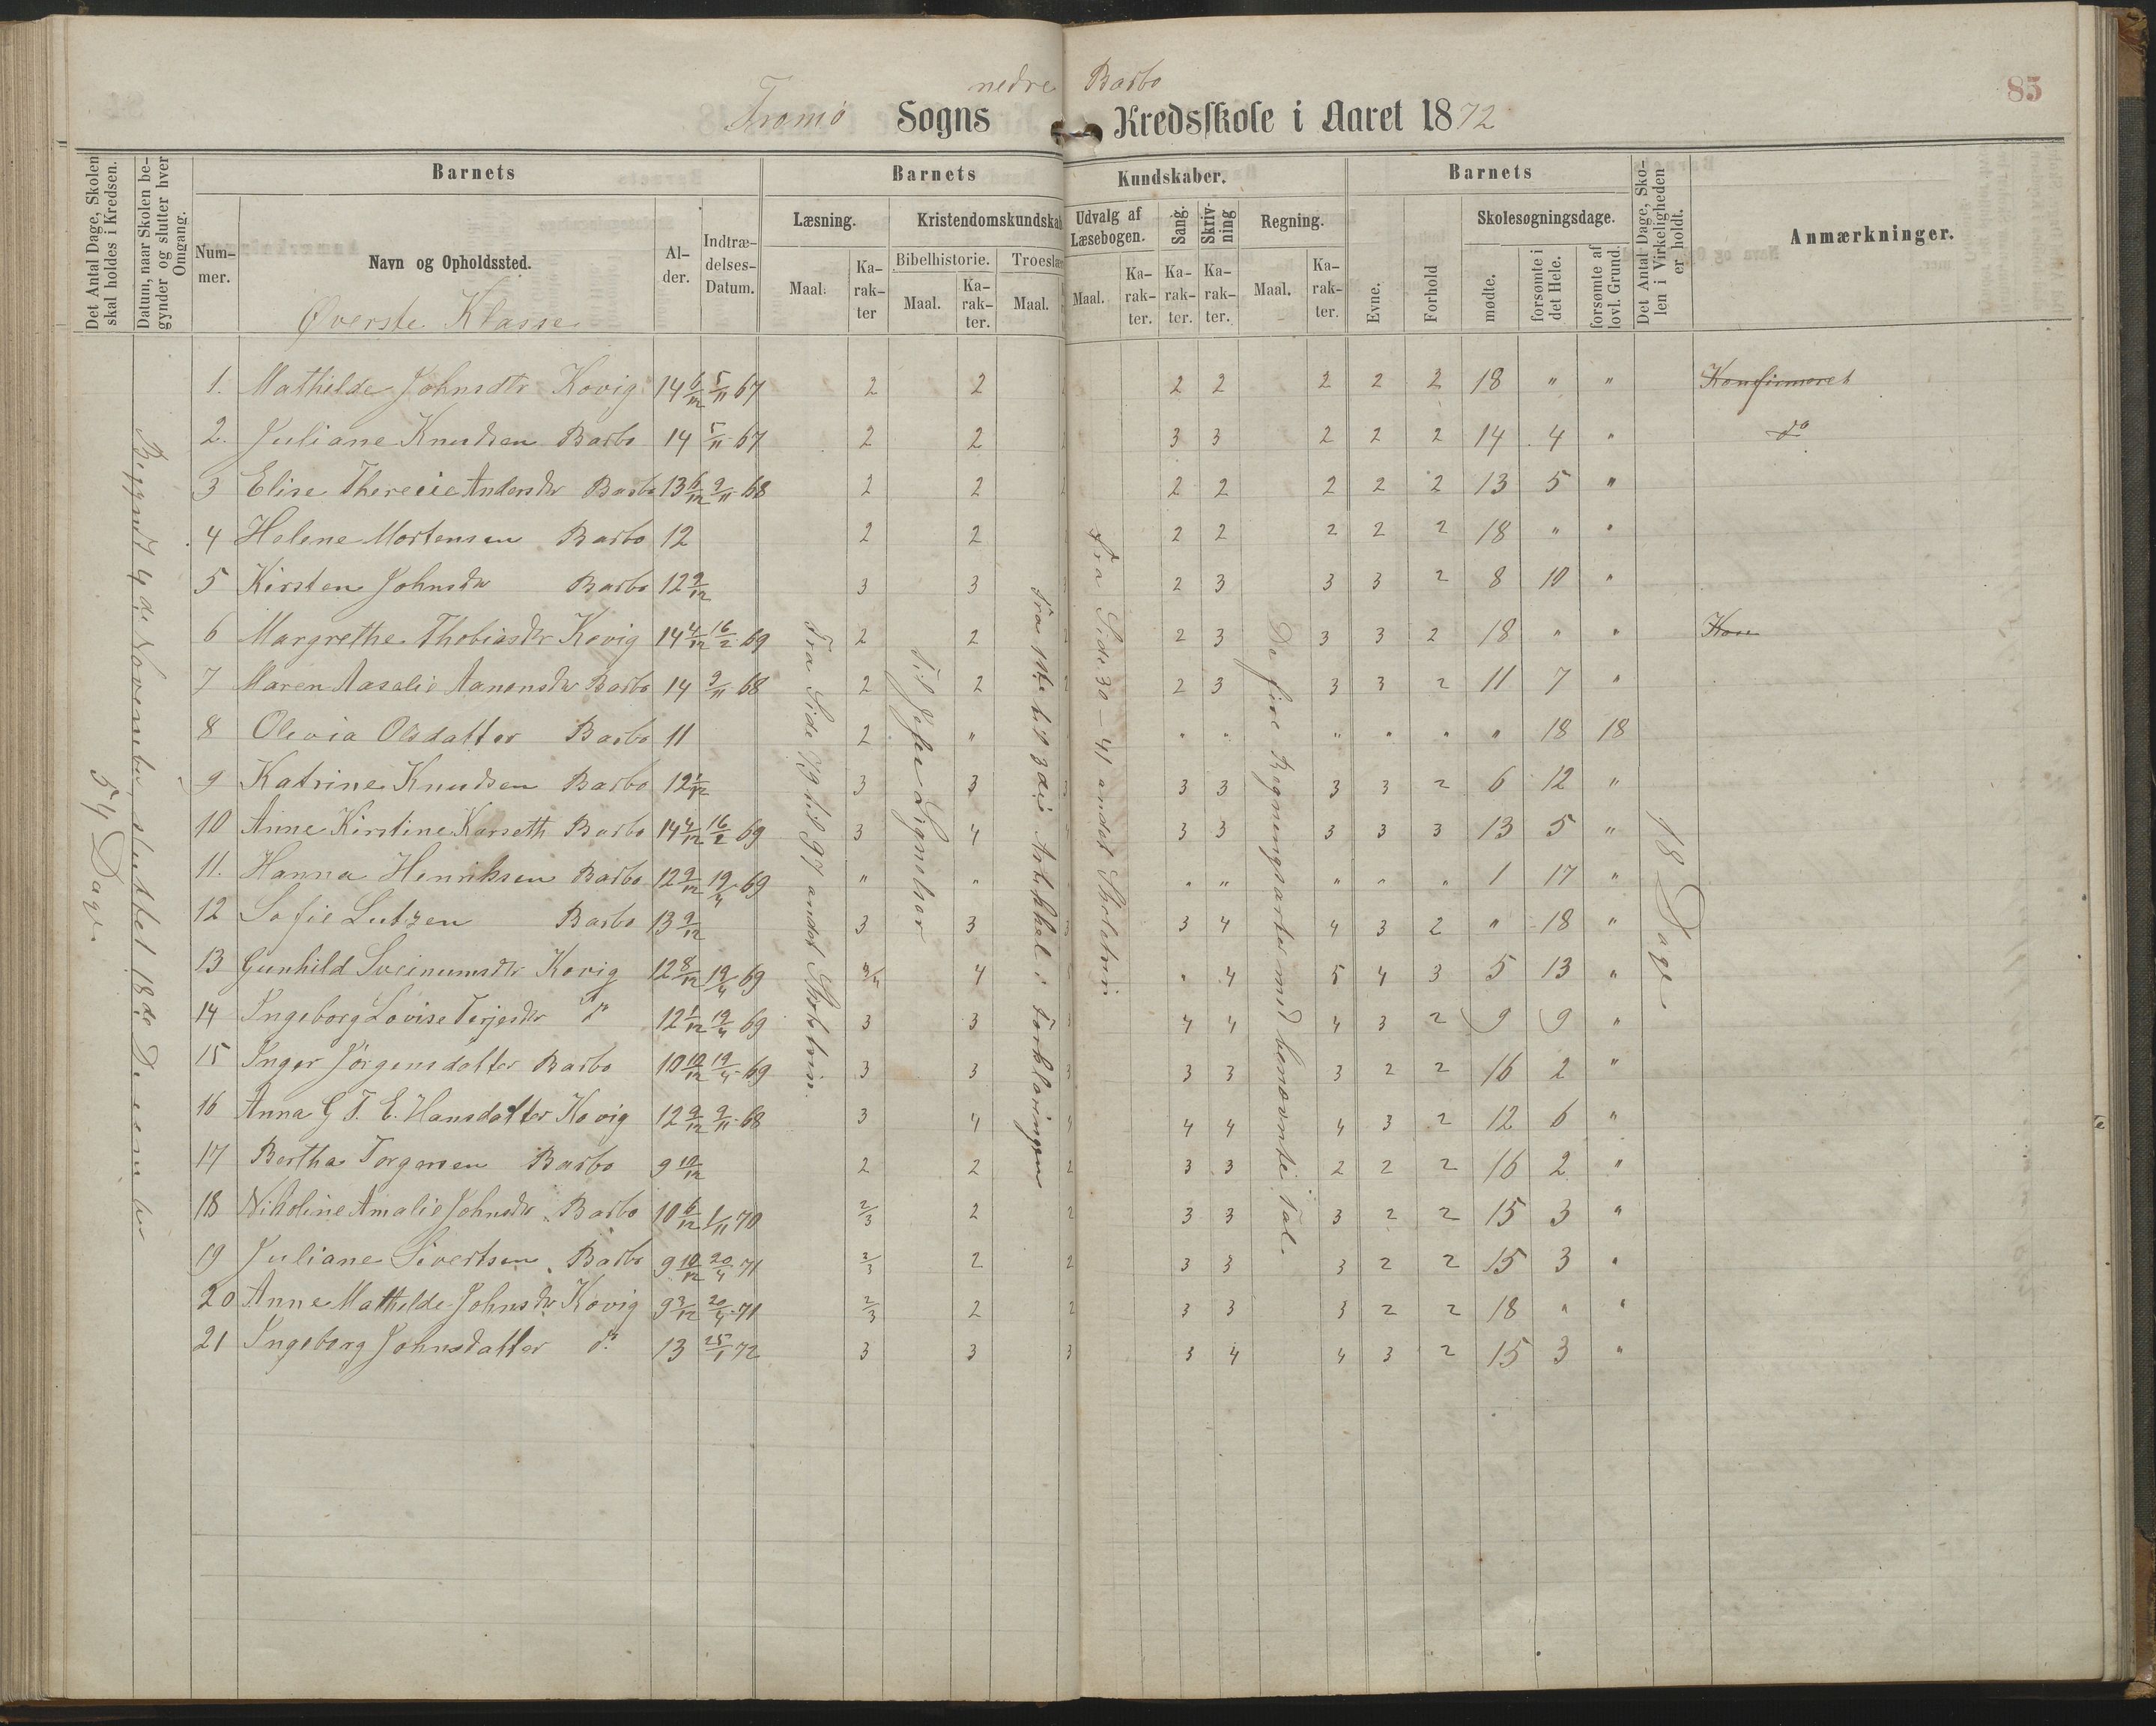 nedre Barbo
85
Tromö Sogns Kredsskole i Aaret 1872
Det Antal Dage, Skolen skal holdes i Kredsen.
Datum, naar Skolen begynder og slutter hver Omgang.
Barnets
Barnets Kundskaber.
Barnets
Det Antal Dage, Skolen i Virkeligheden er holdt.
Anmærkninger.
Nummer.
Navn og Opholdssted.
Alder.
Indtrædelses-Datum.
Læsning.
Kristendomskundskab
Udvalg af Læsebogen.
Sang.
Skrivning
Regning.
Evne.
Forhold
Skolesøgningsdage.
Bibelhistorie.
Troeslær
Maal. Karakter
Maal. Karakter.
Maal.
Maal. Karakter.
Karakter.
Karakter.
Maal. Karakter.
mødte.
forsømte i det Hele.
forsømte af lovl. Grund.
Øverste Klasse
1. Mathilde Johnsdtr Kovig 14 6/12 5/11 67 2 2 2 2 2 2 2 18 " " Konfirmeret
2. Juliane Knudsen Barbo 14 5/11 67 2 2 3 3 2 2 2 14 4 " do
3 Elise Therecie Andersdtr Barbo 13 6/12 9/11 68 2 2 2 2 2 2 2 13 5 "
4 Helene Mortensen Barbo 12 2 2 2 2 2 2 2 18 " "
5 Kirsten Johnsdtr Barbo 12 9/12 3 3 3 2 3 3 3 2 8 10 "
6 Margrethe Thobiasdtr Kovig 14 4/12 16/2 69 2 2 2 2 3 3 3 2 18 " " Kon
7 Maren Aasalie Aanonsdtr Barbo 14 9/11 68 2 2 2 2 3 3 3 2 11 7 "
8 Olevia Olsdatter Barbo 11 2 " " " " " " " 18 18
9 Katrine Knudsen Barbo 12 1/12 3 3 3 3 3 3 3 2 6 12 "
10 Anne Kirstine Karseth Barbo 14 4/12 16/2 69 3 4 4 3 3 3 3 3 13 5 "
11. Hanna Henriksen Barbo 12 9/12 19/4 69 " " " " " " " 1 17 "
12 Sofie Lutzen Barbo 13 9/12 3 3 3 3 4 4 3 2 " 18 "
13 Gunhild Sveinumsdtr Kovig 12 8/12 19/4 69 3/4 4 " 4 5 4 3 5 13 "
14 Ingeborg Lovise Terjesdtr do 12 1/12 19/4 69 3 3 3 4 4 4 3 2 9 9 "
15 Inger Jörgensdatter Barbo 10 10/12 19/4 69 3 3 3 3 3 3 2 2 16 2 "
16 Anna G T. E. Hansdatter Kovig 12 9/12 9/11 68 3 4 4 4 4 4 3 2 12 6 "
17 Bertha Torgersen Barbo 9 10/12 2 2 2 3 3 2 2 2 16 2 "
18 Nikoline Amalie Johnsdtr Barbo 10 6/12 1/11 70 2/3 2 2 3 3 3 2 2 15 3 "
19 Juliane Sivertsen Barbo 9 10/12 20/4 71 2/3 2 2 3 3 3 2 2 15 3 "
20 Anne Mathilde Johnsdtr Kovig 9 3/12 20/4 71 2/3 2 2 3 3 3 2 2 18 " "
21 Ingeborg Johnsdatter do 13 25/1 72 3 3 3 3 4 4 3 2 15 3 "
54 Dage.
Begyndt 4de November, sluttet 18de December
Fra Side 79 til 97 andet Skoletrin.
Til Jesu Lignelser
Fra 1ste til 3die Artikkel i Forklaringen
Fra Side 30 - 41 andet Skoletrin
De fire Regningsarter med benævnte Tal.
18 Dage